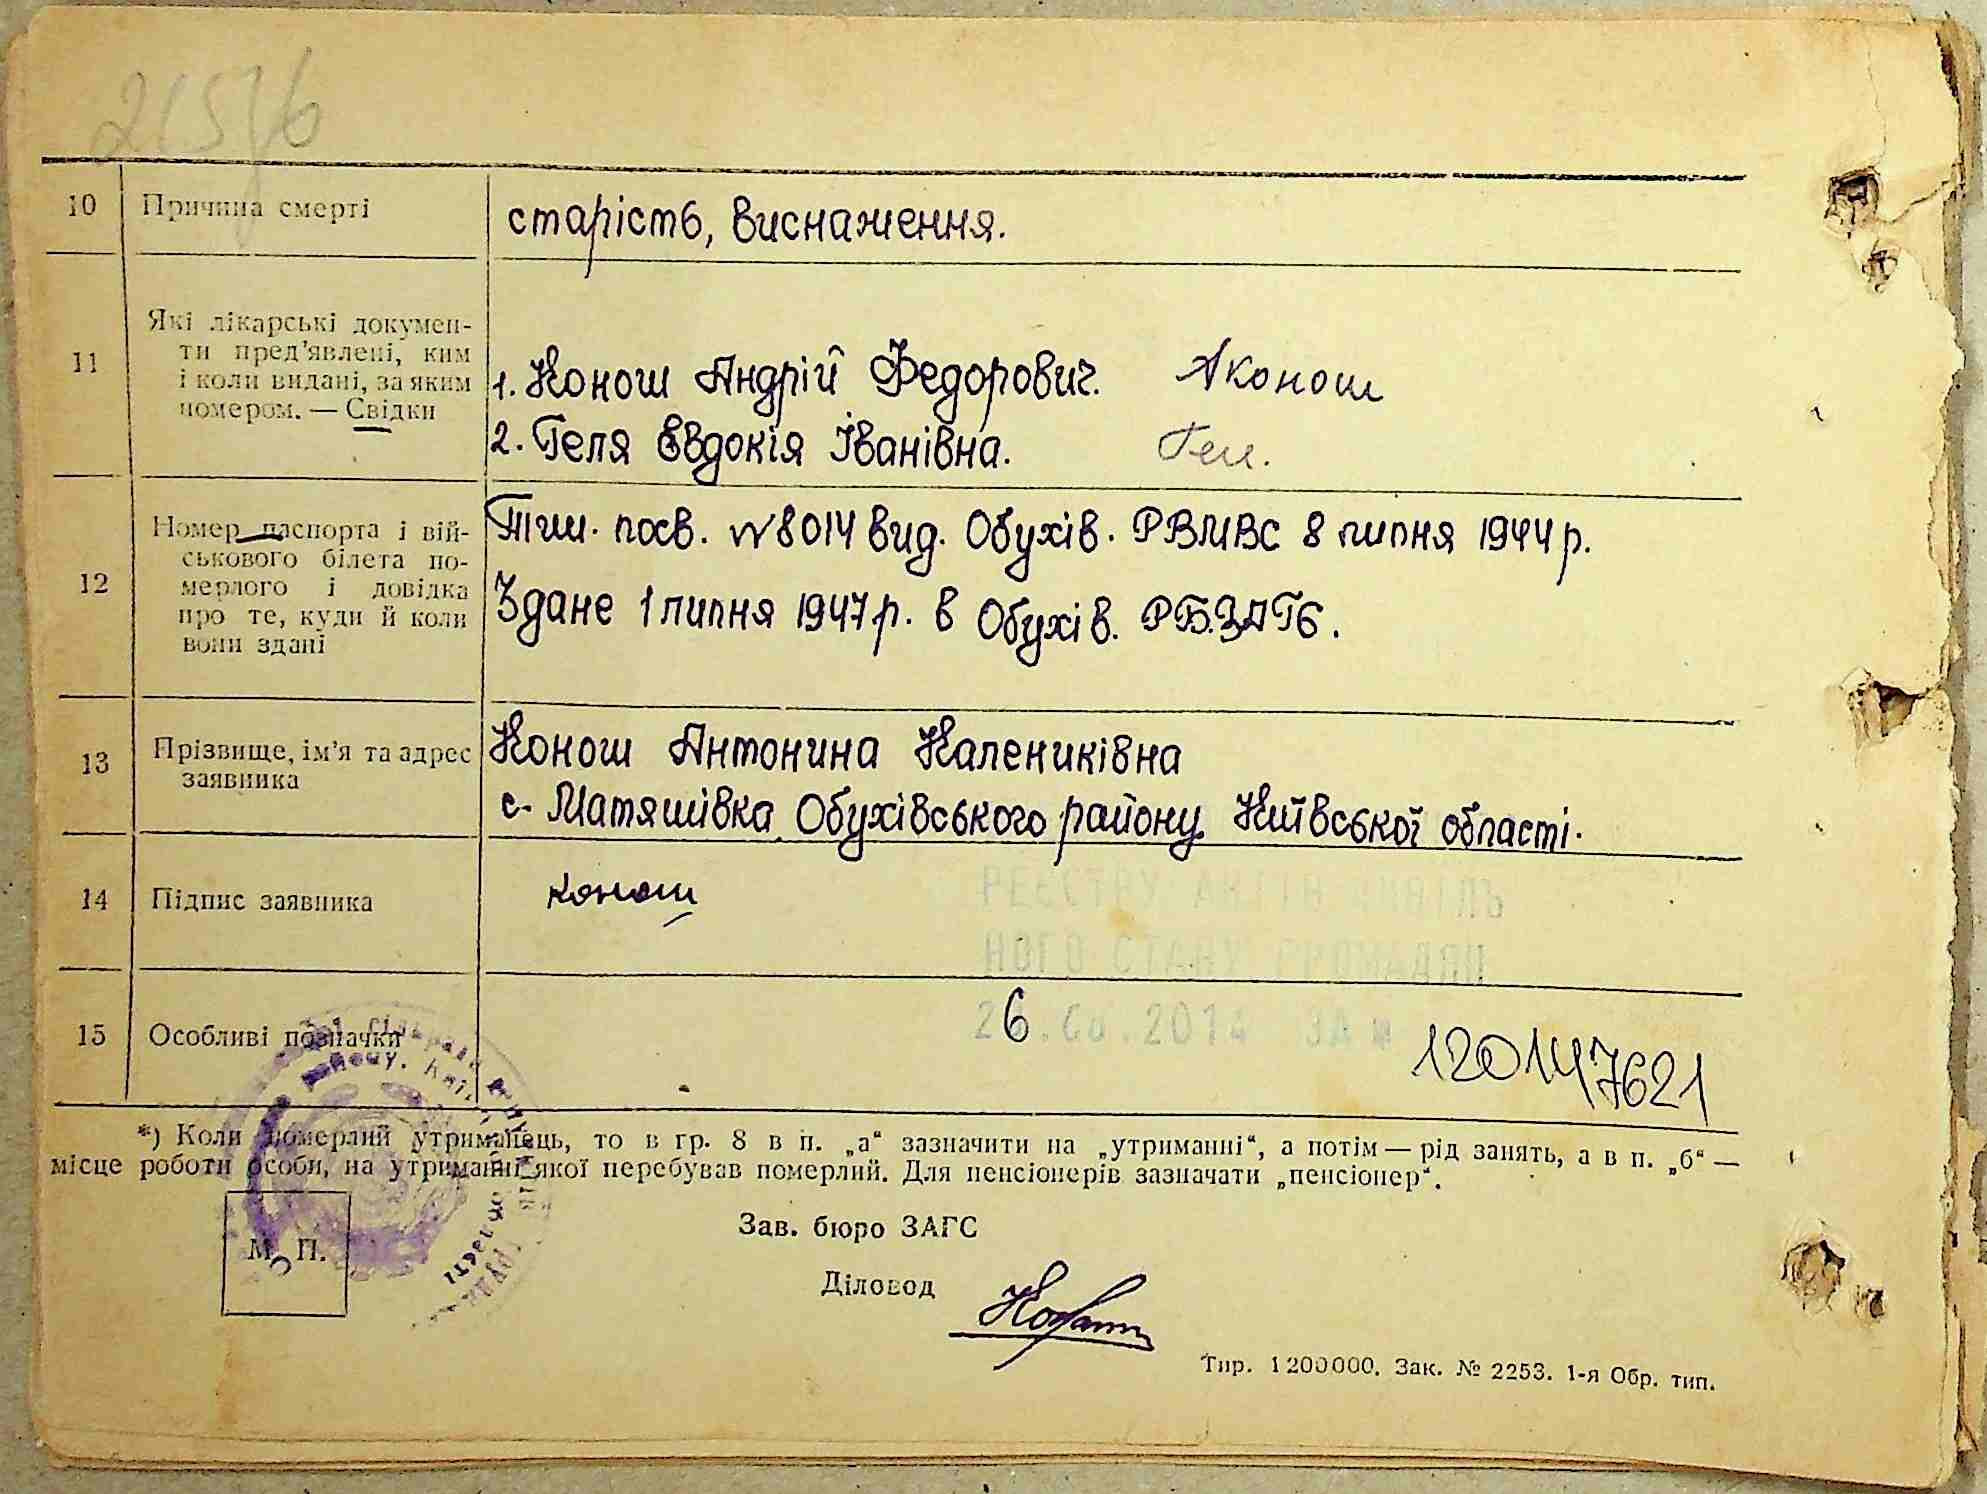 10 Причина смерті старість, виснаження.
11 Які лікарські докумен-
ти пред'явлені, ким
і коли видані, за яким
номером. — Свідки
1. Конош Андрій Федорович. Аконош
2. Геля Євдокія Іванівна. Гел.
12 Номер паспорта і вій-
ськового білета по-
мерлого і довідка
про те, куди й коли
вони здані
Тім. посв. №8014 вид. Обухів. РВМВС 8 липня 1944 р.
Здане 1 липня 1947 р. в Обухів. РБЗАГС.
13 Прізвище, ім'я та адрес
заявника
Конош Антонина Калениківна
с. Матяшівка Обухівського району Київської області.
14 Підпис заявника конош
РЕЄСТРУ АКТІВ ЦИВІЛЬ
НОГО СТАНУ ГРОМАДЯН
15 Особливі позначки
26. 2014 ЗА № 120147621
*) Коли померлий утриманець, то в гр. 8 в п. „а“ зазначити на „утриманні“, а потім — рід занять, а в п. „б“ —
місце роботи особи, на утриманні якої перебував померлий. Для пенсіонерів зазначати „пенсіонер“.
М. П.
Зав. бюро ЗАГС
Діловод
Тир. 1200000. Зак. № 2253. 1-я Обр. тип.